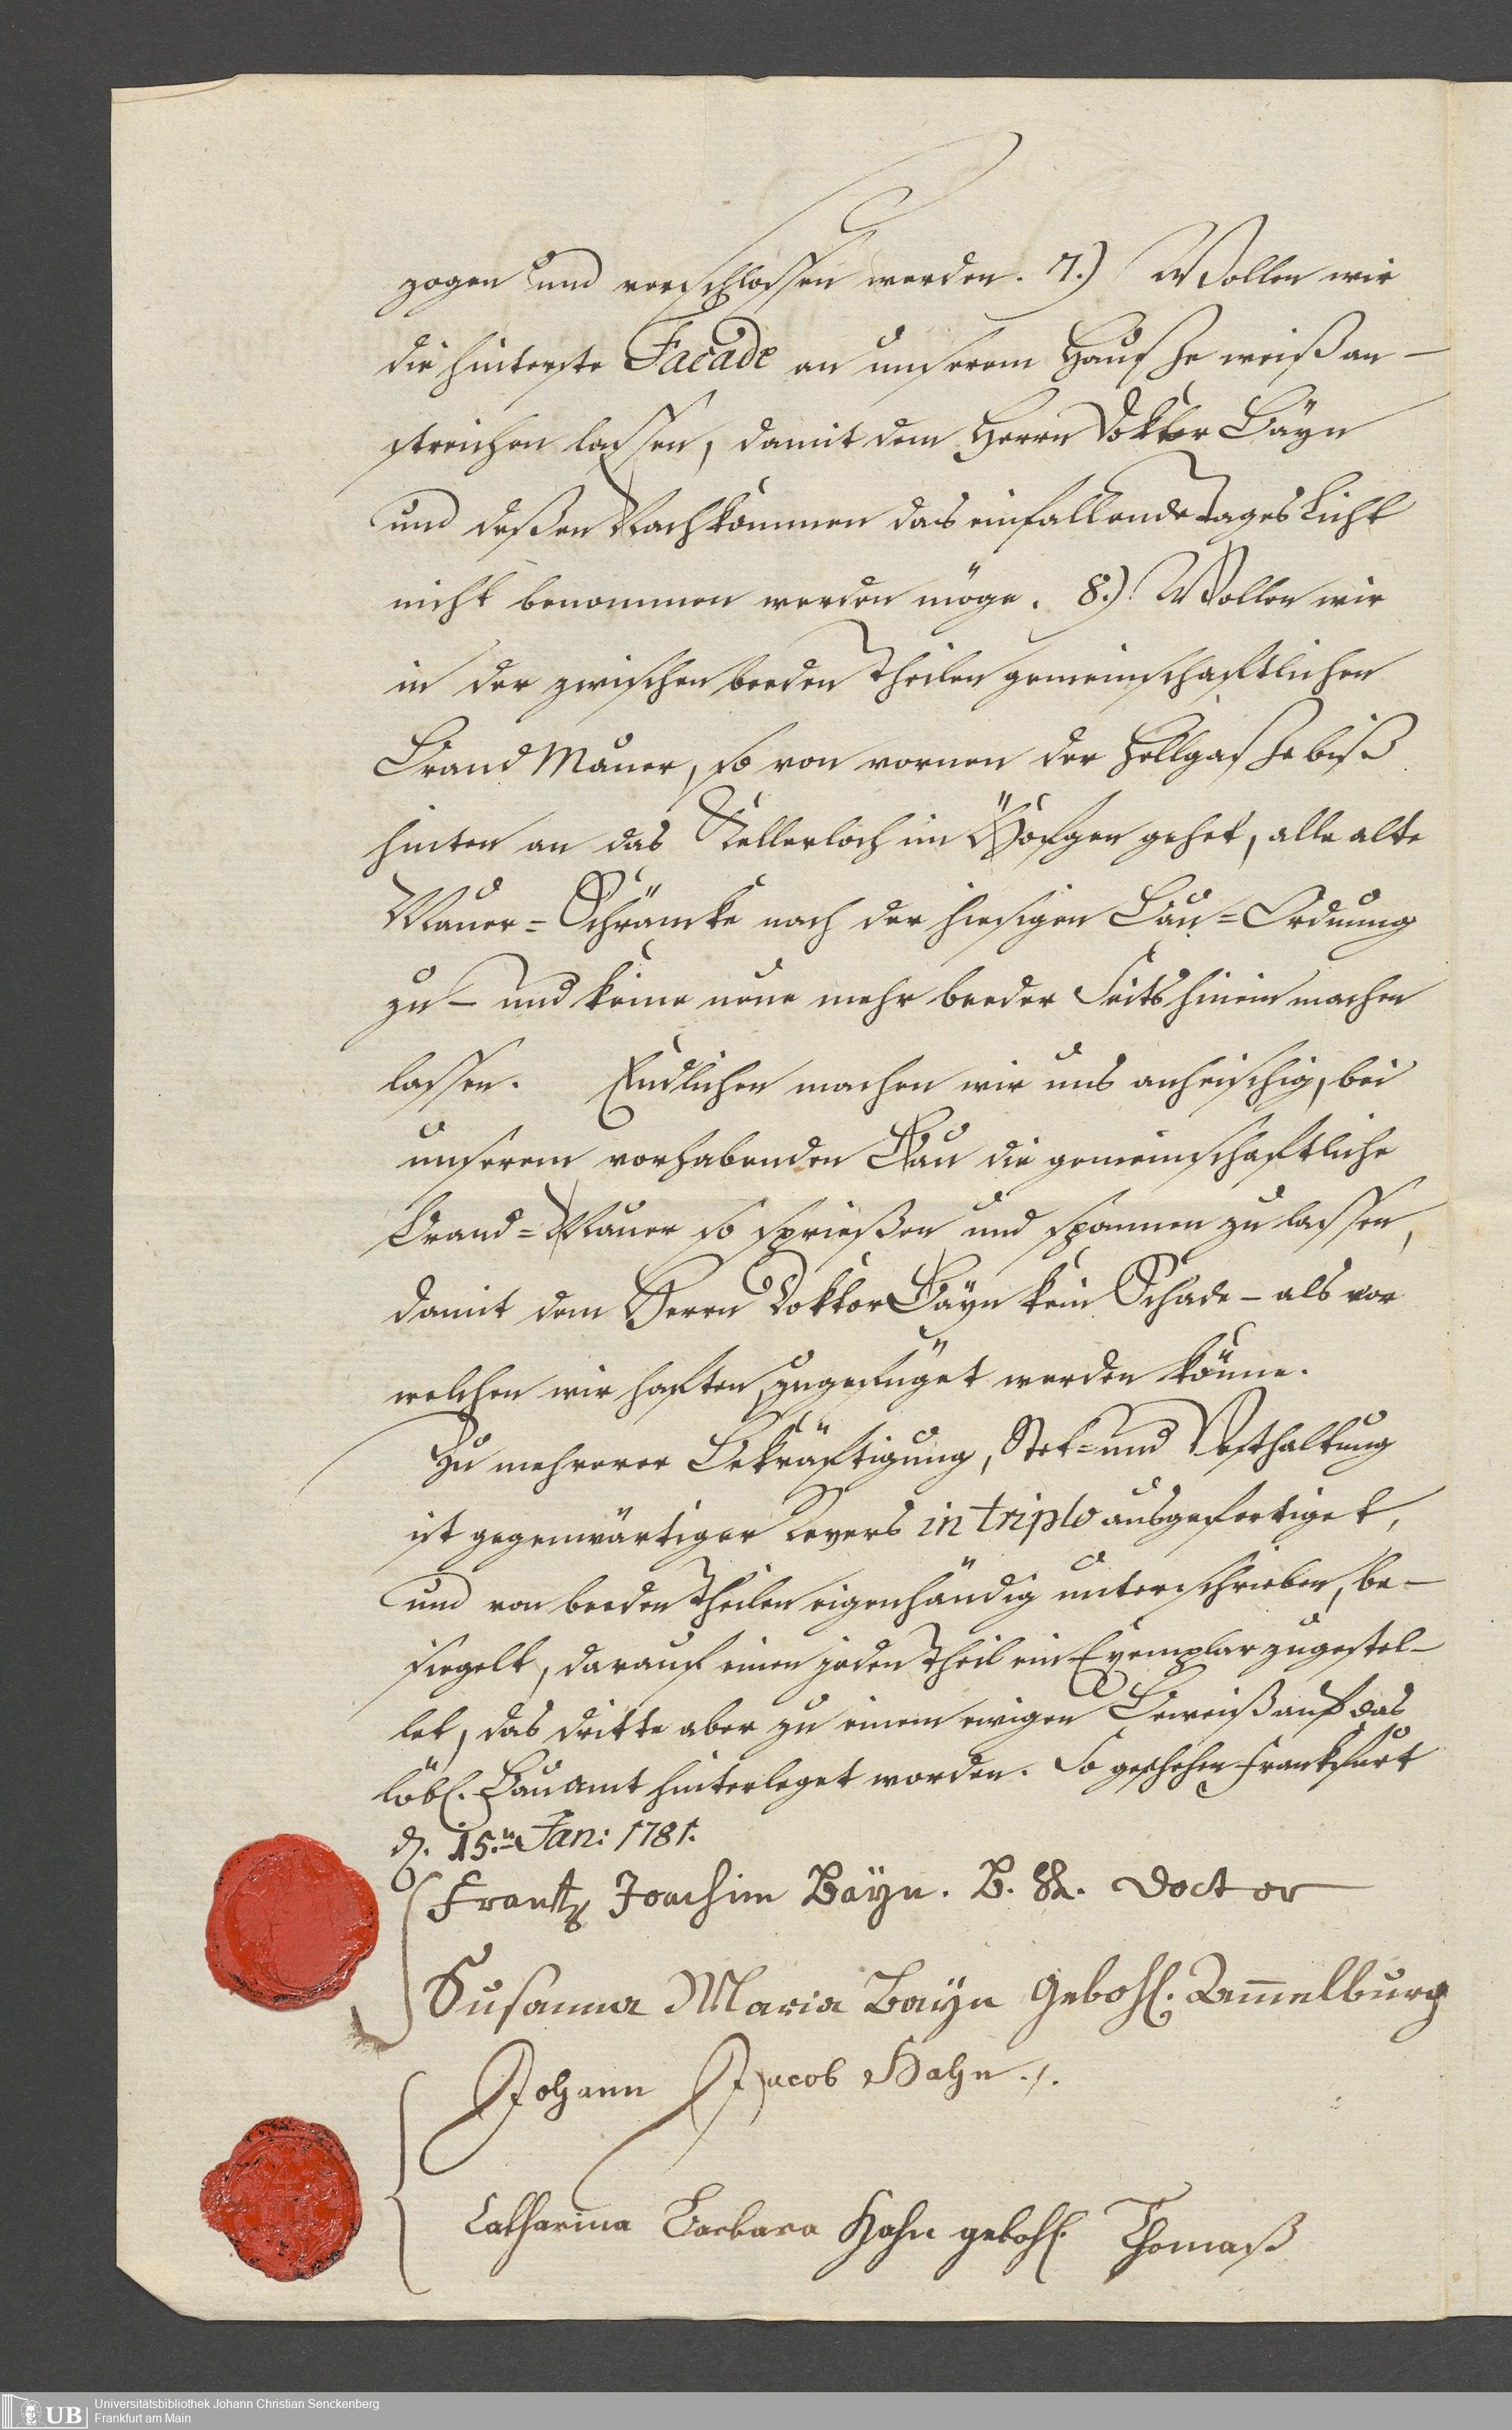 zogen und verschlossen werden. 7.) Wollen wir
die hinterste Facade an unserem Hausse weiß an-
streichen lassen, damit dem Herrn Doktor Bäyn
und deßen Nachkommen das einfallende Tages Licht
nicht benommen werden möge. 8.) Wollen wir
in der zwischen beeden Theilen gemeinschaftlichen
Brand Mauer, so von vornen der Höllgasse biß
hinten an das Kellerloch im Höfgen gehet, alle alte
Mauer=Schräncke nach der hiesigen Bau=Ordnung
zu- und keine neue mehr beeder Seits hinein machen
lassen. Endlichen machen wir uns anheischig, bei
unserem vorhabenden Bau die gemeinschaftliche
Brand=Mauer so sprießen und spannen zu lassen,
damit dem Herrn Doktor Bäyn kein Schade - als vor
welchen wir haften, zugefüget werden könne.
Zu mehrerer Bekräftigung, Stet= und Vesthaltung
ist gegenwärtiger Revers in triplo ausgefertiget,
und von beeden Theilen eigenhändig unterschrieben, be-
siegelt, darauf einen jeden Theil ein Exemplar zugestel-
let, das dritte aber zu einem ewigen Beweiß auf das
löbl. Bauamt hinterleget worden. So geschehen Frankfurt
d. 15.n Jan: 1781.
Frantz Joachim Bäyn. B. R. Doctor
Susanna Maria Bayn gebohl. Lemelburg
Johann Jacob Hahn
Catharina Barbara Hahn gebohl. Thomaß
UB
Universitätsbibliothek Johann Christian Senckenberg
Frankfurt am Main